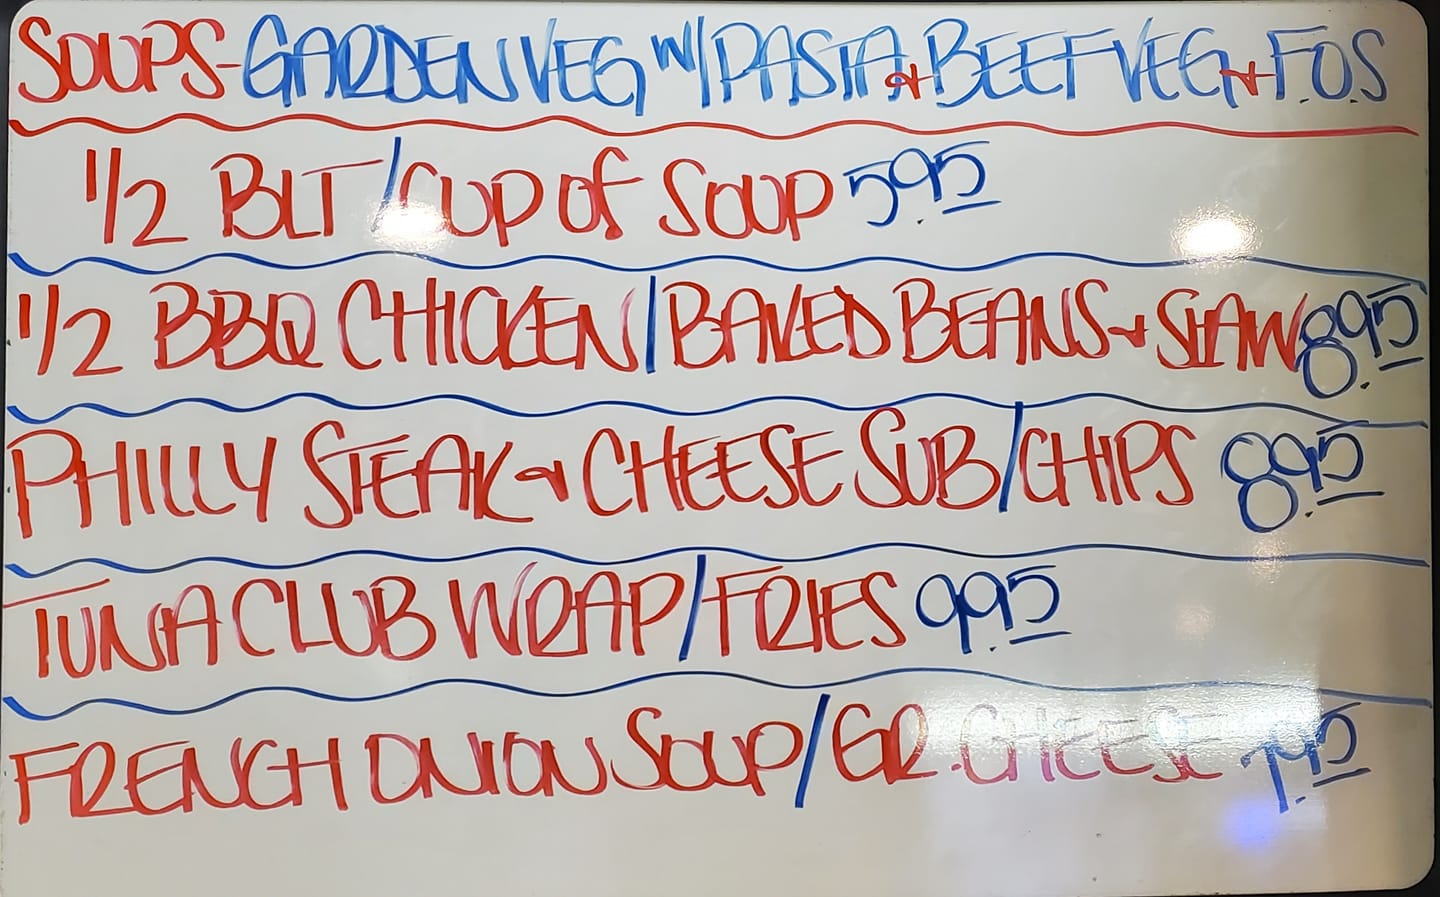 SOUPS-GARDEN VEG W/PASTA & BEEF VEG & F.O.S
1/2 BLT/CUP OF SOUP 5.95
1/2 BBQ CHICKEN/BAKED BEANS & SLAW 8.95
PHILLY STEAK & CHEESE SUB/CHIPS 8.95
TUNA CLUB WRAP/FRIES 9.95
FRENCH ONION SOUP/GR. CHEESE 7.95